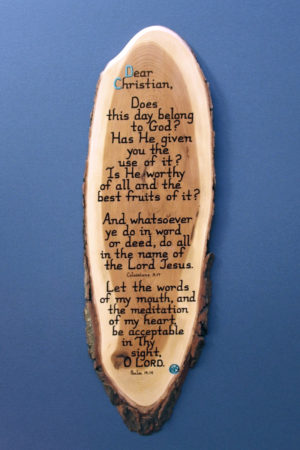 Dear
Christian,
Does
this day belong
to God?
Has He given
you the
use of it?
Is He worthy
of all and the
best fruits of it?
And whatsoever
ye do in word
or deed, do all
in the name of
the Lord Jesus.
Colossians 3:17
Let the words
of my mouth, and
the meditation
of my heart,
be acceptable
in Thy
sight,
O LORD.
Psalm 19:14